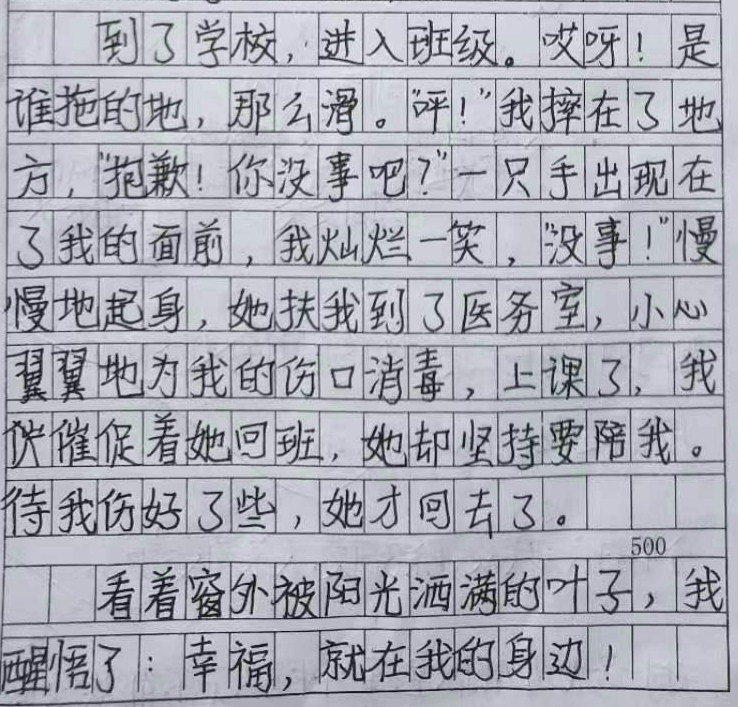 到了学校，进入班级。哎呀！是
谁拖的地，那么滑。“呯！”我摔在了地
方，“抱歉！你没事吧？”一只手出现在
了我的面前，我灿烂一笑，“没事！”慢
慢地起身，她扶我到了医务室，小心
翼翼地为我的伤口消毒，上课了，我
催促着她回班，她却坚持要陪我。
待我伤好了些，她才回去了。
500
看着窗外被阳光洒满的叶子，我
醒悟了：幸福，就在我的身边！